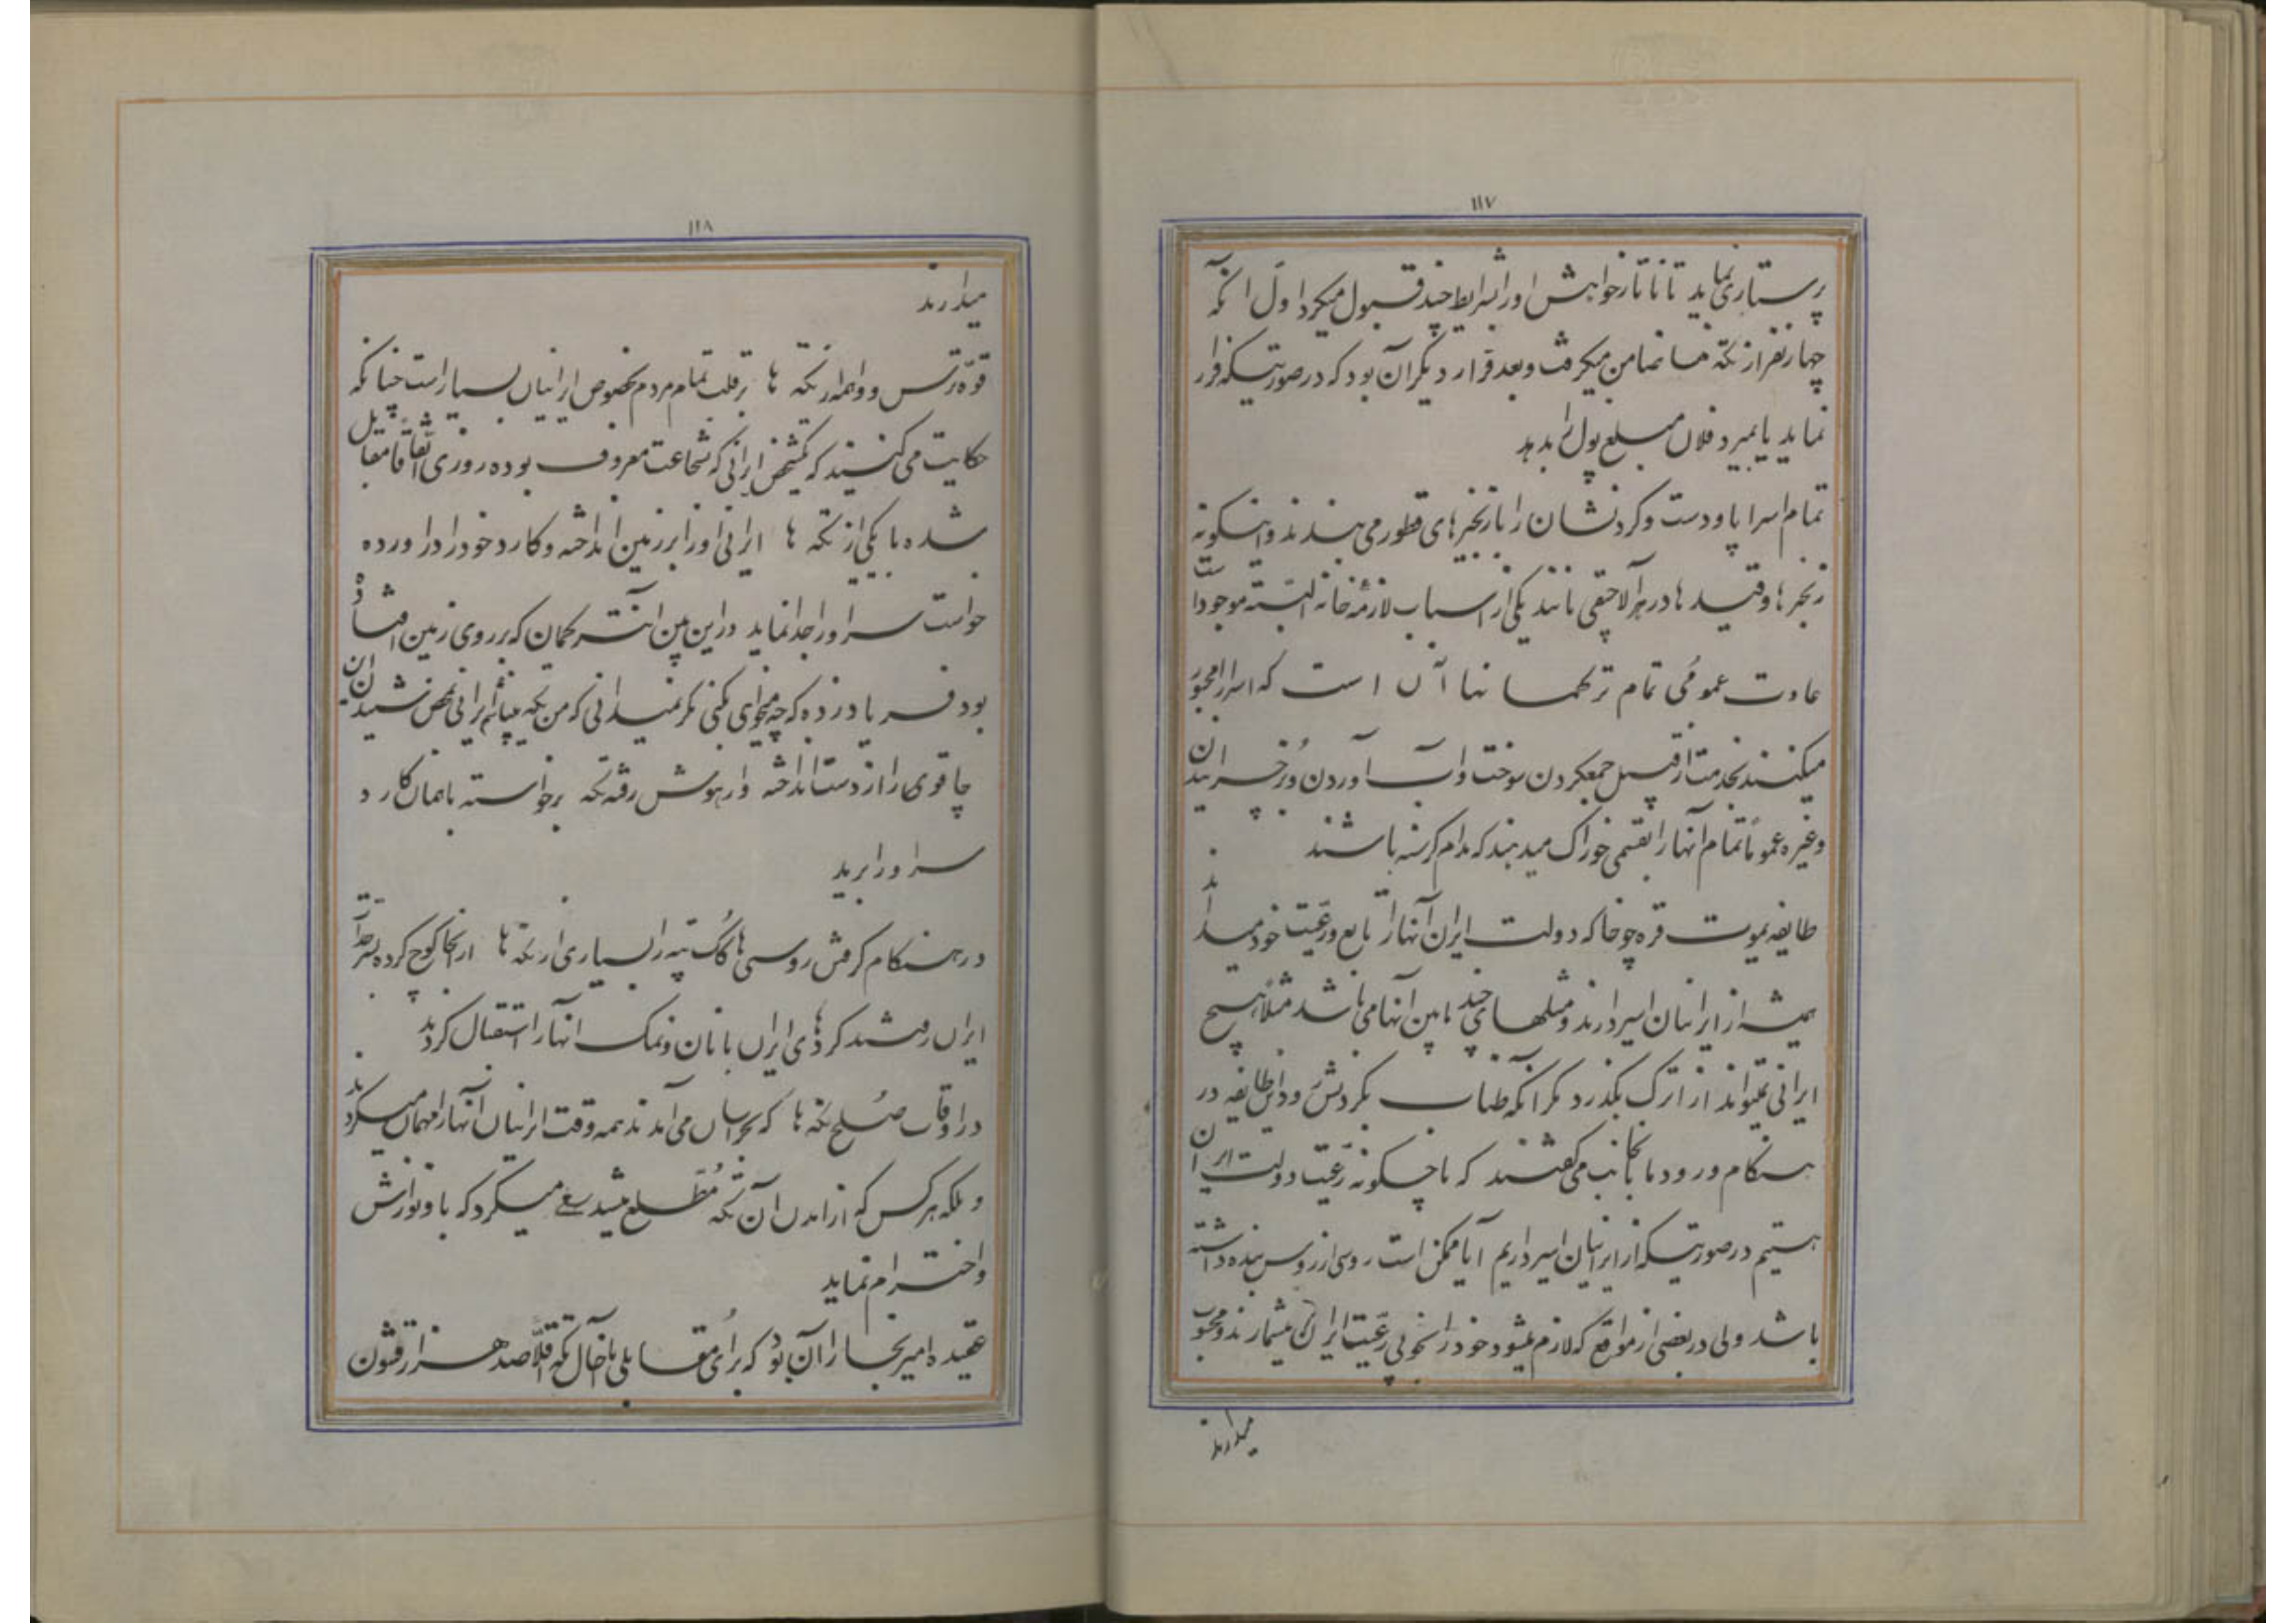 ۱۱۷
پرستاری نماید تا تاتار خواهش او را بشرایط چند قبول میکرد اول آنکه
چهار نفر از تکه ضامن میگرفت و بعد قرار دیگر آن بود که در صورتیکه فرار
نماید یا بمیرد فلان مبلغ پول بدهد
تمام اسرا پا و دست و گردنشان را با زنجیرهای قطور می بندند و اینگونه
زنجیرها و قیدها در هر آلاچیقی مانند یکی از اسباب لازمه خانه البته موجود است
عادت عمومی تمام ترکمانها آن است که اسرا را مجبور
میکنند بخدمت از قبیل جمع کردن سوخت و آب آوردن و بز چرانیدن
و غیره عموماً تمام آنها را بقسمی خوراک میدهند که مدام گرسنه باشند
طایفه یموت قره چوخا که دولت ایران آنها را تابع و رعیت خود میداند
همیشه از ایرانیان اسیر دارند و مثلهای چند مابین آنها می باشد مثلاً هیچ
ایرانی نمیتواند از اترک بگذرد مگر آنکه طناب بگردنش و این طایفه در
هنگام ورود ما بآنجانب می گفتند که ما چگونه رعیت دولت ایران
هستیم در صورتیکه از ایرانیان اسیر داریم آیا ممکن است روسی از روس بنده داشته
باشد ولی در بعضی از مواقع که لازم میشود خود را بخوبی رعیت ایران میشمارند و محبوب
میدارند
۱۱۸
میدارند
قوه ترس و واهمه از تکه ها بر قلب تمام مردم بخصوص ایرانیان بسیار است چنانکه
حکایت می کنند که یکشخص ایرانی که بشجاعت معروف بوده روزی اتفاقاً مقابل
شده با یکی از تکه ها ایرانی او را بر زمین انداخته و کارد خود را در آورده
خواست سر او را جدا نماید در این بین آن ترکمان که بر روی زمین افتاده
بود فریاد زده که چه میخواهی بکنی مگر نمیدانی که من تکه میباشم ایرانی بمحض شنیدن آن
چاقوی را از دست انداخته و از هوش رفته تکه برخواسته با همان کارد
سر او را برید
در هنگام گرفتن روسی ها گک تپه را بسیاری از تکه ها از آنجا کوچ کرده بسرحد
ایران رفتند کردهای ایران با نان و نمک آنها را استقبال کردند
در اوقات صلح تکه ها که بخراسان می آمدند همه وقت ایرانیان آنها را مهمان میکردند
و بلکه هر کس که از آمدن آن تکه مطلع میشد سعی میکرد که باو نوازش
و احترام نماید
عقیده امیر بخارا آن بود که برای مقابلی با آخال تکه اقلاً صد هزار قشون